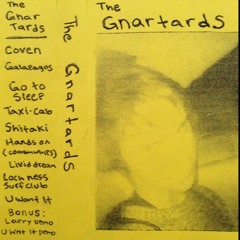 The
Gnar
Tards
Coven
Galapagos
Go to
Sleep
Taxi-Cab
Shitaki
Hands on
(communists)
Livid dream
Loch ness
Surf club
U Want It
Bonus:
Larry Demo
U Wnt It Demo
The Gnartards
The
Gnartards